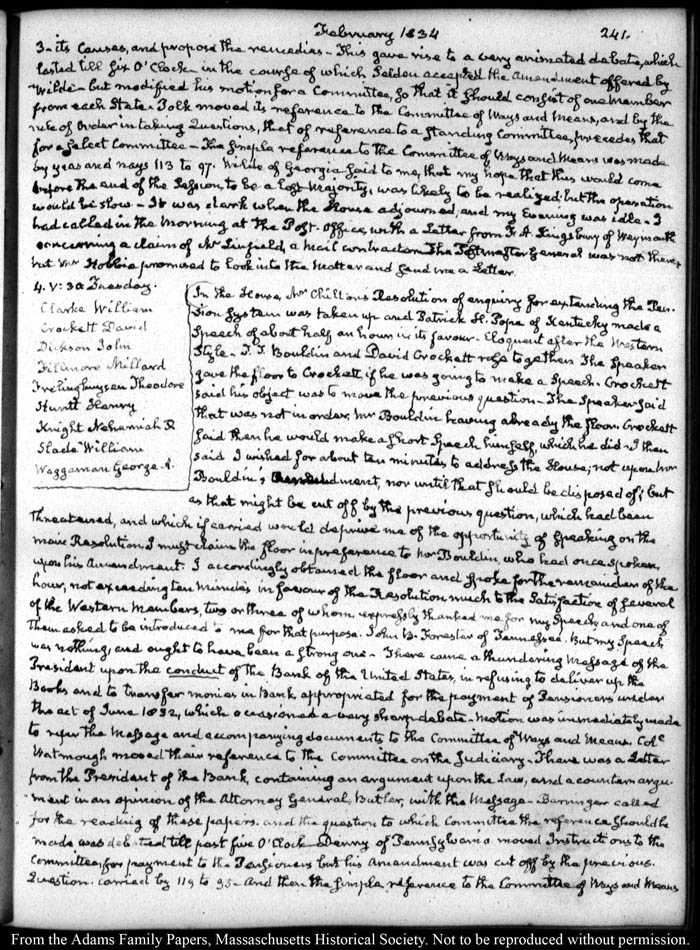 February 1834
241.
3 - its Causes, and propose the remedies - This gave rise to a very animated debate, which
lasted till six O'Clock - in the course of which Selden accepted the Amendment offered by
Wilde - but modified his motion for a Committee, so that it should consist of one Member
from each State. Polk moved its reference to the Committee of Ways and Means, and by the
rule of Order in taking Questions, that of reference to a standing Committee, precedes that
for a select Committee - The simple reference to the Committee of Ways and Means was made
by yeas and nays 113 to 97. Wilde of Georgia said to me, that my hope that this would come
before the end of the Session, to be a lost Majority, was likely to be realized, but the operation
would be slow - It was dark when the House adjourned, and my Evening was idle - I
had called in the morning at the Post-Office, with a Letter from F. A. Kingsbury of Weymouth
concerning a claim of Mr Linfield, a Mail contractor. The Postmaster General was not there
but Mr Hobbie promised to look into the Matter and send me a Letter.
4. V: 30 Tuesday.
Clarke William
Crockett David
Dickson John
Fillmore Millard
Frelinghuysen Theodore
Hewitt Henry
Knight Nehemiah R
Slade William
Waggaman George A.
In the House, Mr Chilton's Resolution of enquiry for extending the Pen-
sion System was taken up and Patrick H. Pope of Kentucky made a
Speech of about half an hour in its favour. Eloquent after the Western
Style - T. T. Bouldin and David Crockett rose together. The Speaker
gave the floor to Crockett, if he was going to make a Speech. Crockett
said his object was to move the previous question - The Speaker said
that was not in order, Mr Bouldin having already the floor. Crockett
said then he would make a short Speech himself, which he did - I then
said I wished for about ten minutes to address the House; not upon Mr
Bouldin's Amendment, nor until that should be disposed of; but
as that might be cut off by the previous question, which had been
threatened, and which if carried would deprive me of the opportunity of speaking on the
main Resolution, I must claim the floor in preference to Mr Bouldin, who had once spoken
upon his Amendment. I accordingly obtained the floor and spoke for the remainder of the
hour, not exceeding ten minutes in favour of the Resolution much to the satisfaction of several
of the Western Members, two or three of whom expressly thanked me for my Speech, and one of
them asked to be introduced to me for that purpose. John B. Forester of Tennessee. But my Speech
was nothing, and ought to have been a strong one - There came a thundering Message of the
President upon the conduct of the Bank of the United States, in refusing to deliver up the
Books and to transfer monies in Bank appropriated for the payment of Pensioners under
the act of June 1832, which occasioned a very sharp debate - Motion was immediately made
to refer the Message and accompanying documents to the Committee of Ways and Means. Colo
Watmough moved their reference to the Committee on the Judiciary. There was a Letter
from the President of the Bank, containing an argument upon the Law, and a counter argu-
ment in an opinion of the Attorney General, Butler, with the Message - Barringer called
for the reading of these papers. and the question to which Committee the reference should be
made was debated till past five O'Clock - Denny of Pennsylvania moved Instructions to the
Committee, for payment to the Pensioners but his Amendment was cut off by the previous
Question. carried by 119 to 95 - And then the simple reference to the Committee of Ways and Means
From the Adams Family Papers, Massachusetts Historical Society. Not to be reproduced without permission.